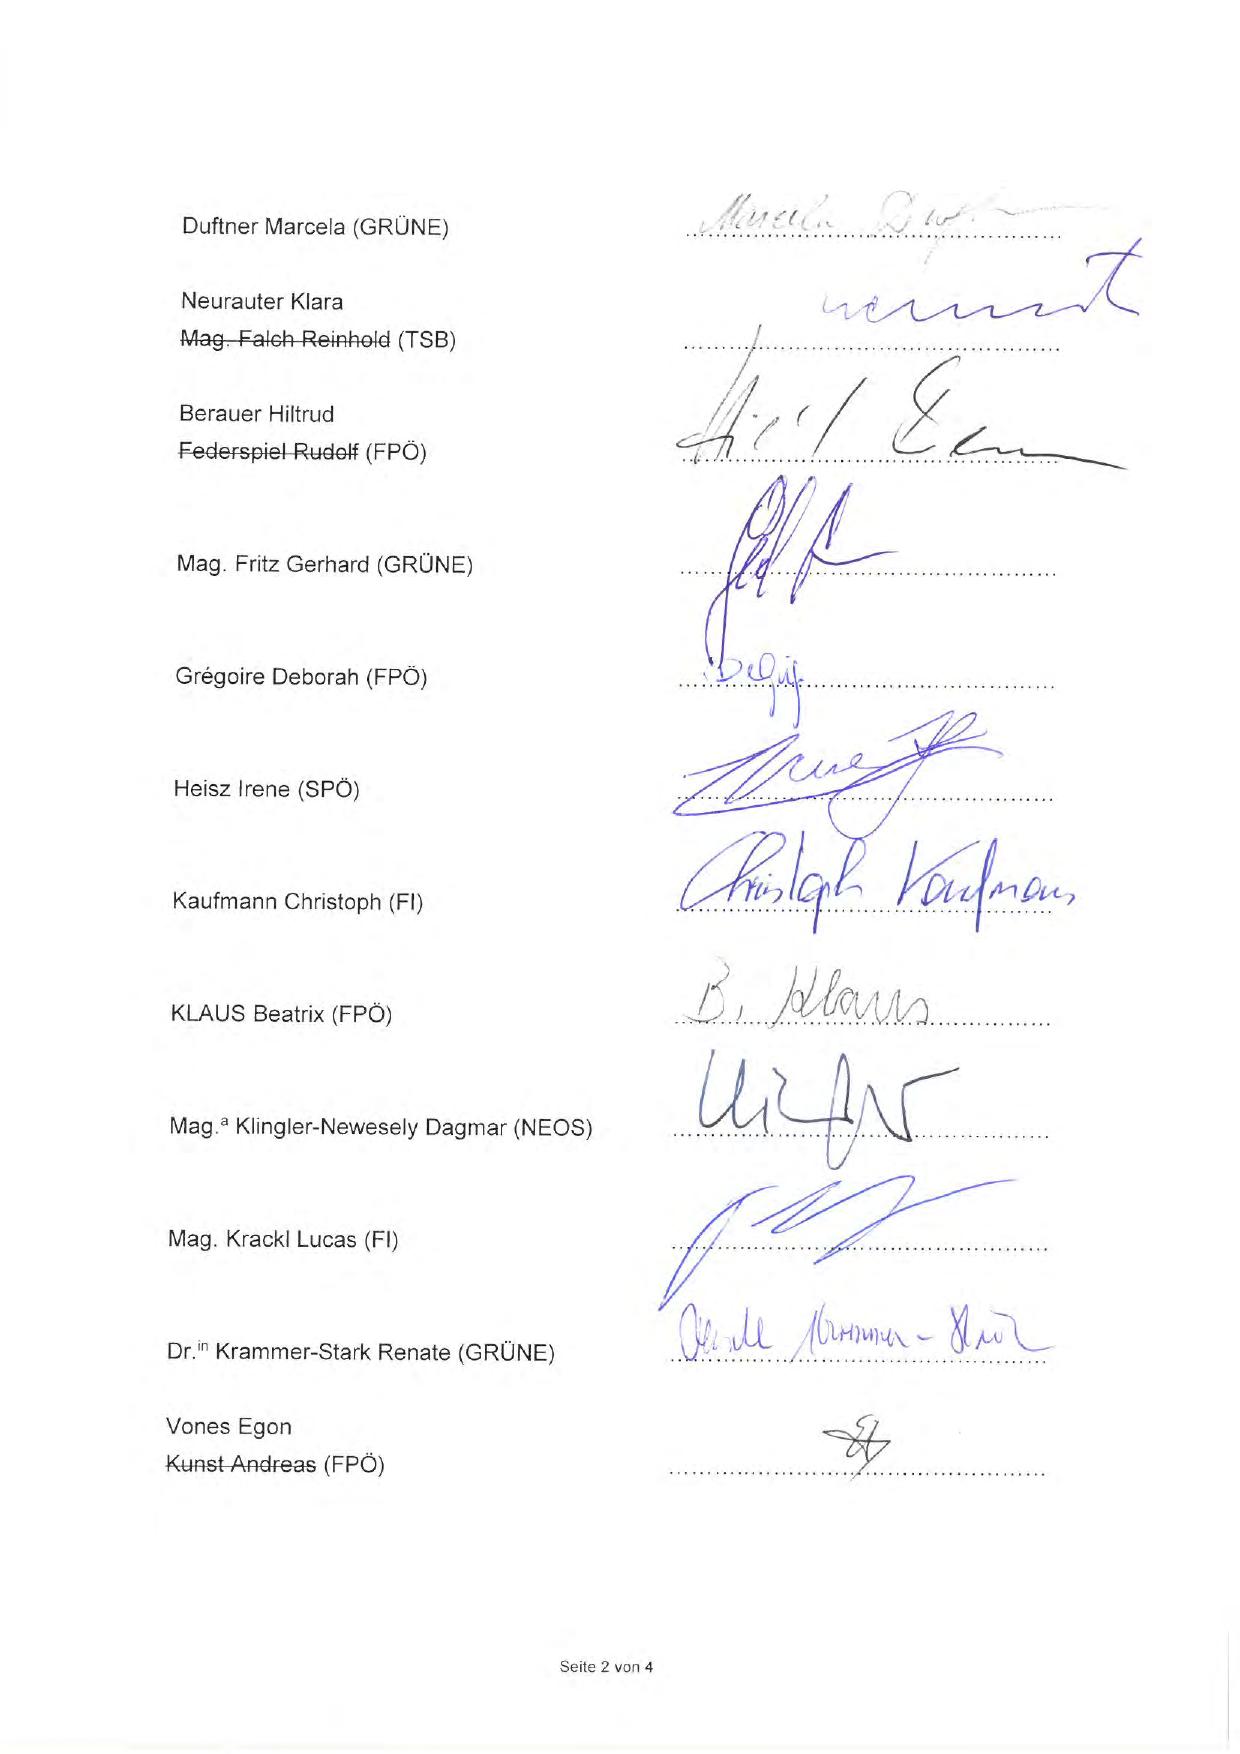 Duftner Marcela (GRÜNE) Marcela
Neurauter Klara
Mag. Falch Reinhold (TSB)
Berauer Hiltrud
Federspiel Rudolf (FPÖ)
Mag. Fritz Gerhard (GRÜNE)
Grégoire Deborah (FPÖ)
Heisz Irene (SPÖ)
Kaufmann Christoph (FI) Christoph Kaufmann
KLAUS Beatrix (FPÖ) B. Klaus
Mag.ª Klingler-Newesely Dagmar (NEOS)
Mag. Krackl Lucas (FI)
Dr.ⁱⁿ Krammer-Stark Renate (GRÜNE)
Vones Egon
Kunst Andreas (FPÖ)
Seite 2 von 4